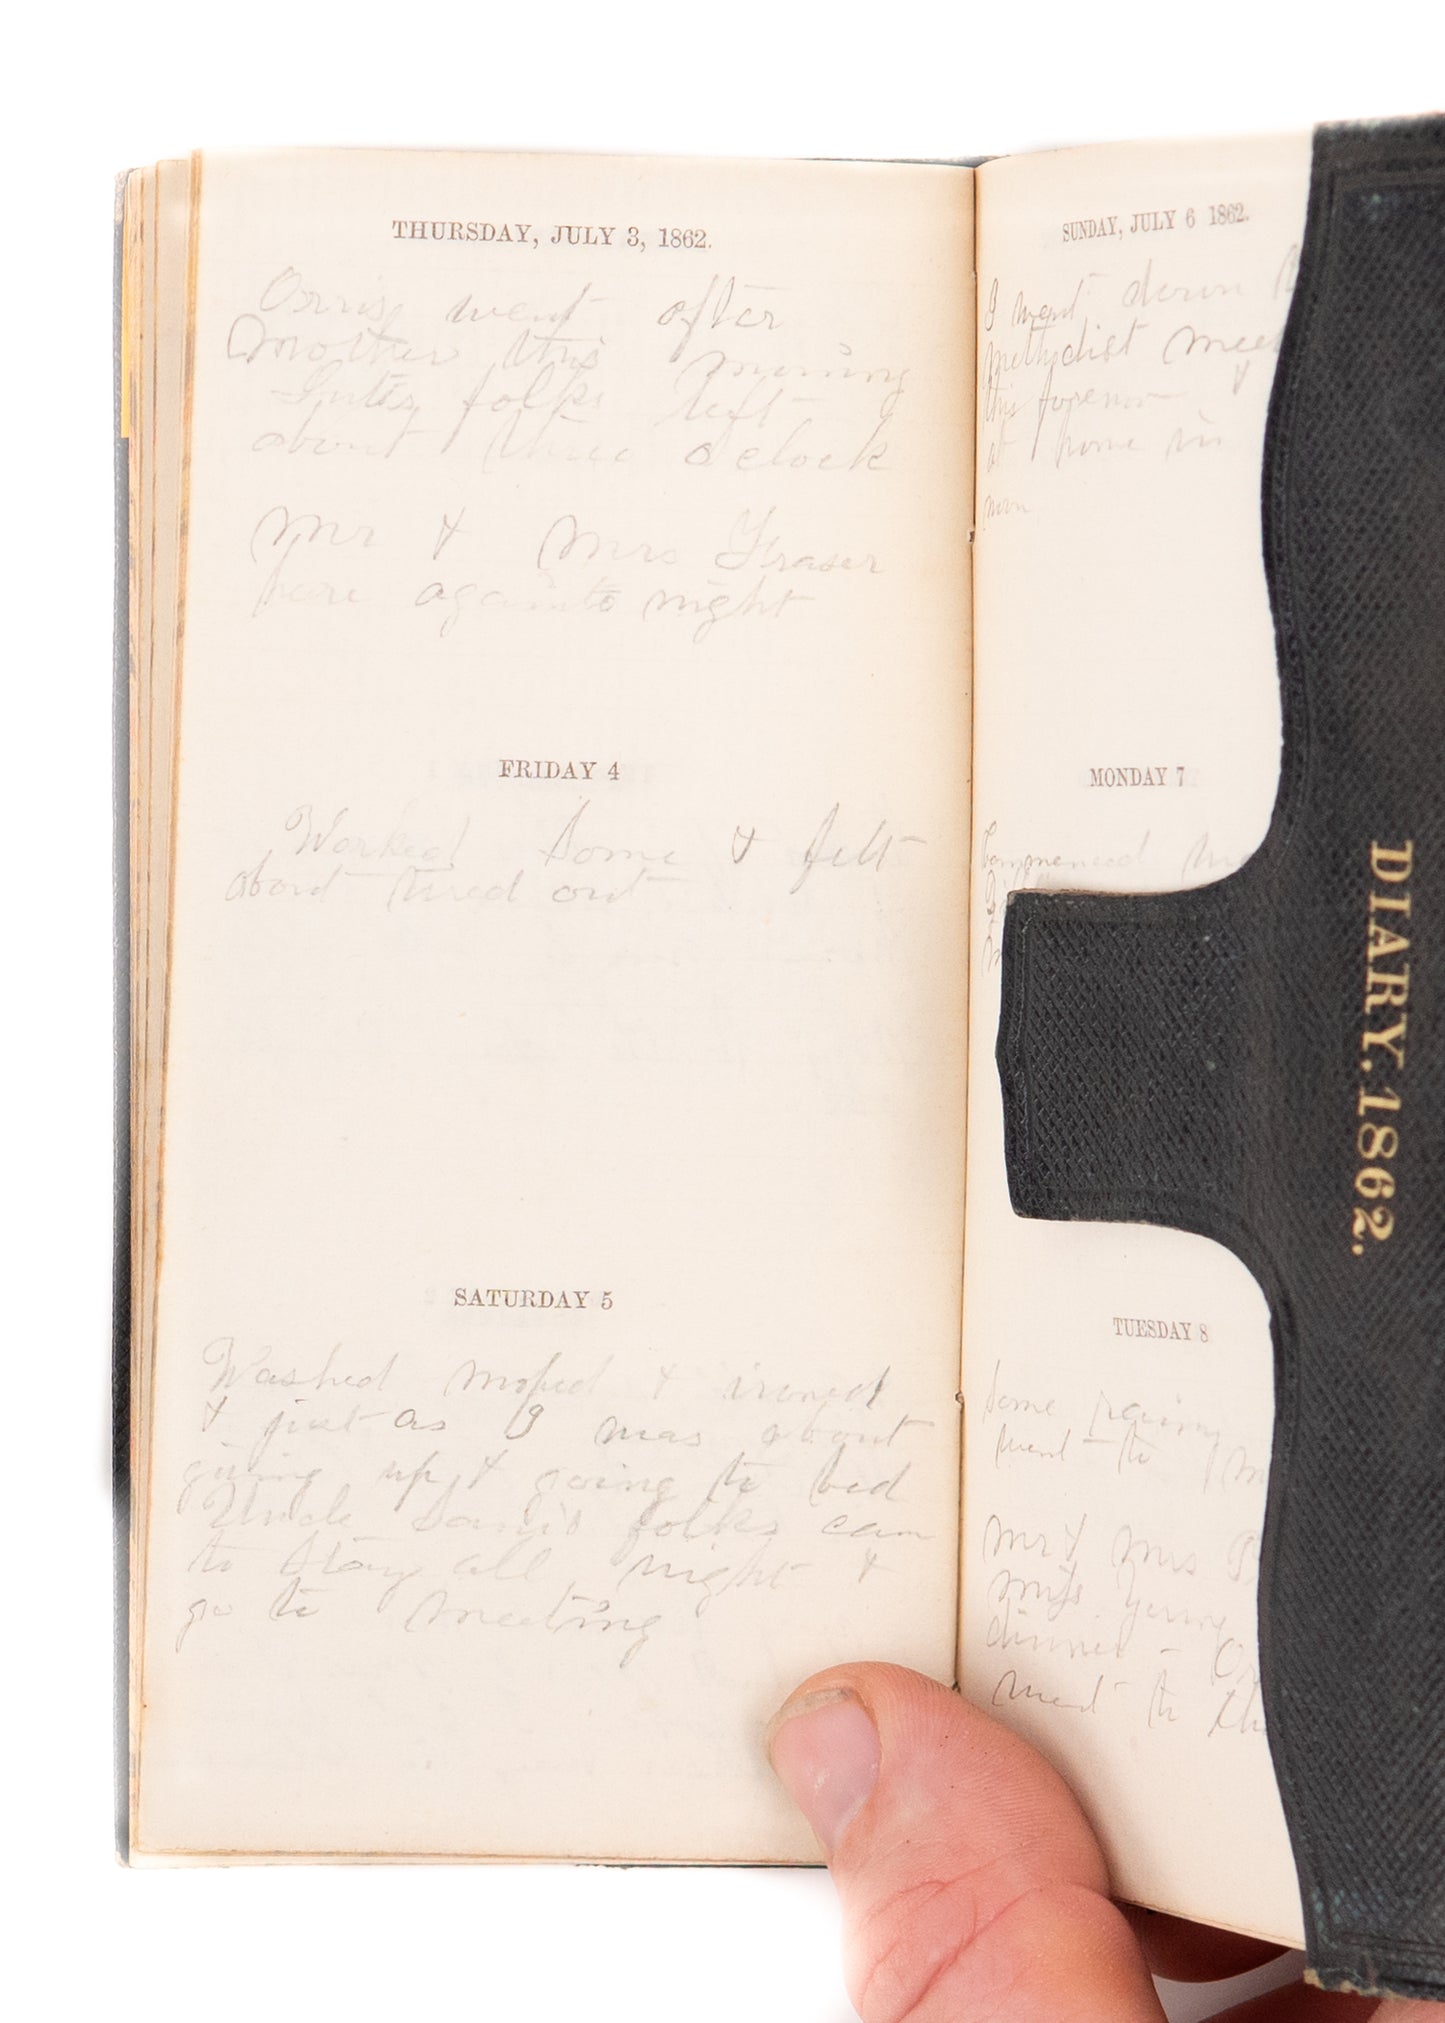 THURSDAY, JULY 3, 1862.
Orris went after
Mother this morning
folks left
about three oclock
Mr & Mrs Fraser
here again to night
FRIDAY 4
Worked some & felt
about tired out
SATURDAY 5
Washed moped & ironed
& just as I was about
giving up & going to bed
Uncle folks cam
to stay all night &
go to meeting
SUNDAY, JULY 6 1862.
I went down
methodist meet
this forenoon &
at home in
noon
MONDAY 7
Commenced
TUESDAY 8
Some raining
went to
Mr & Mrs
miss Young
dinner - Or
went to th
DIARY. 1862.